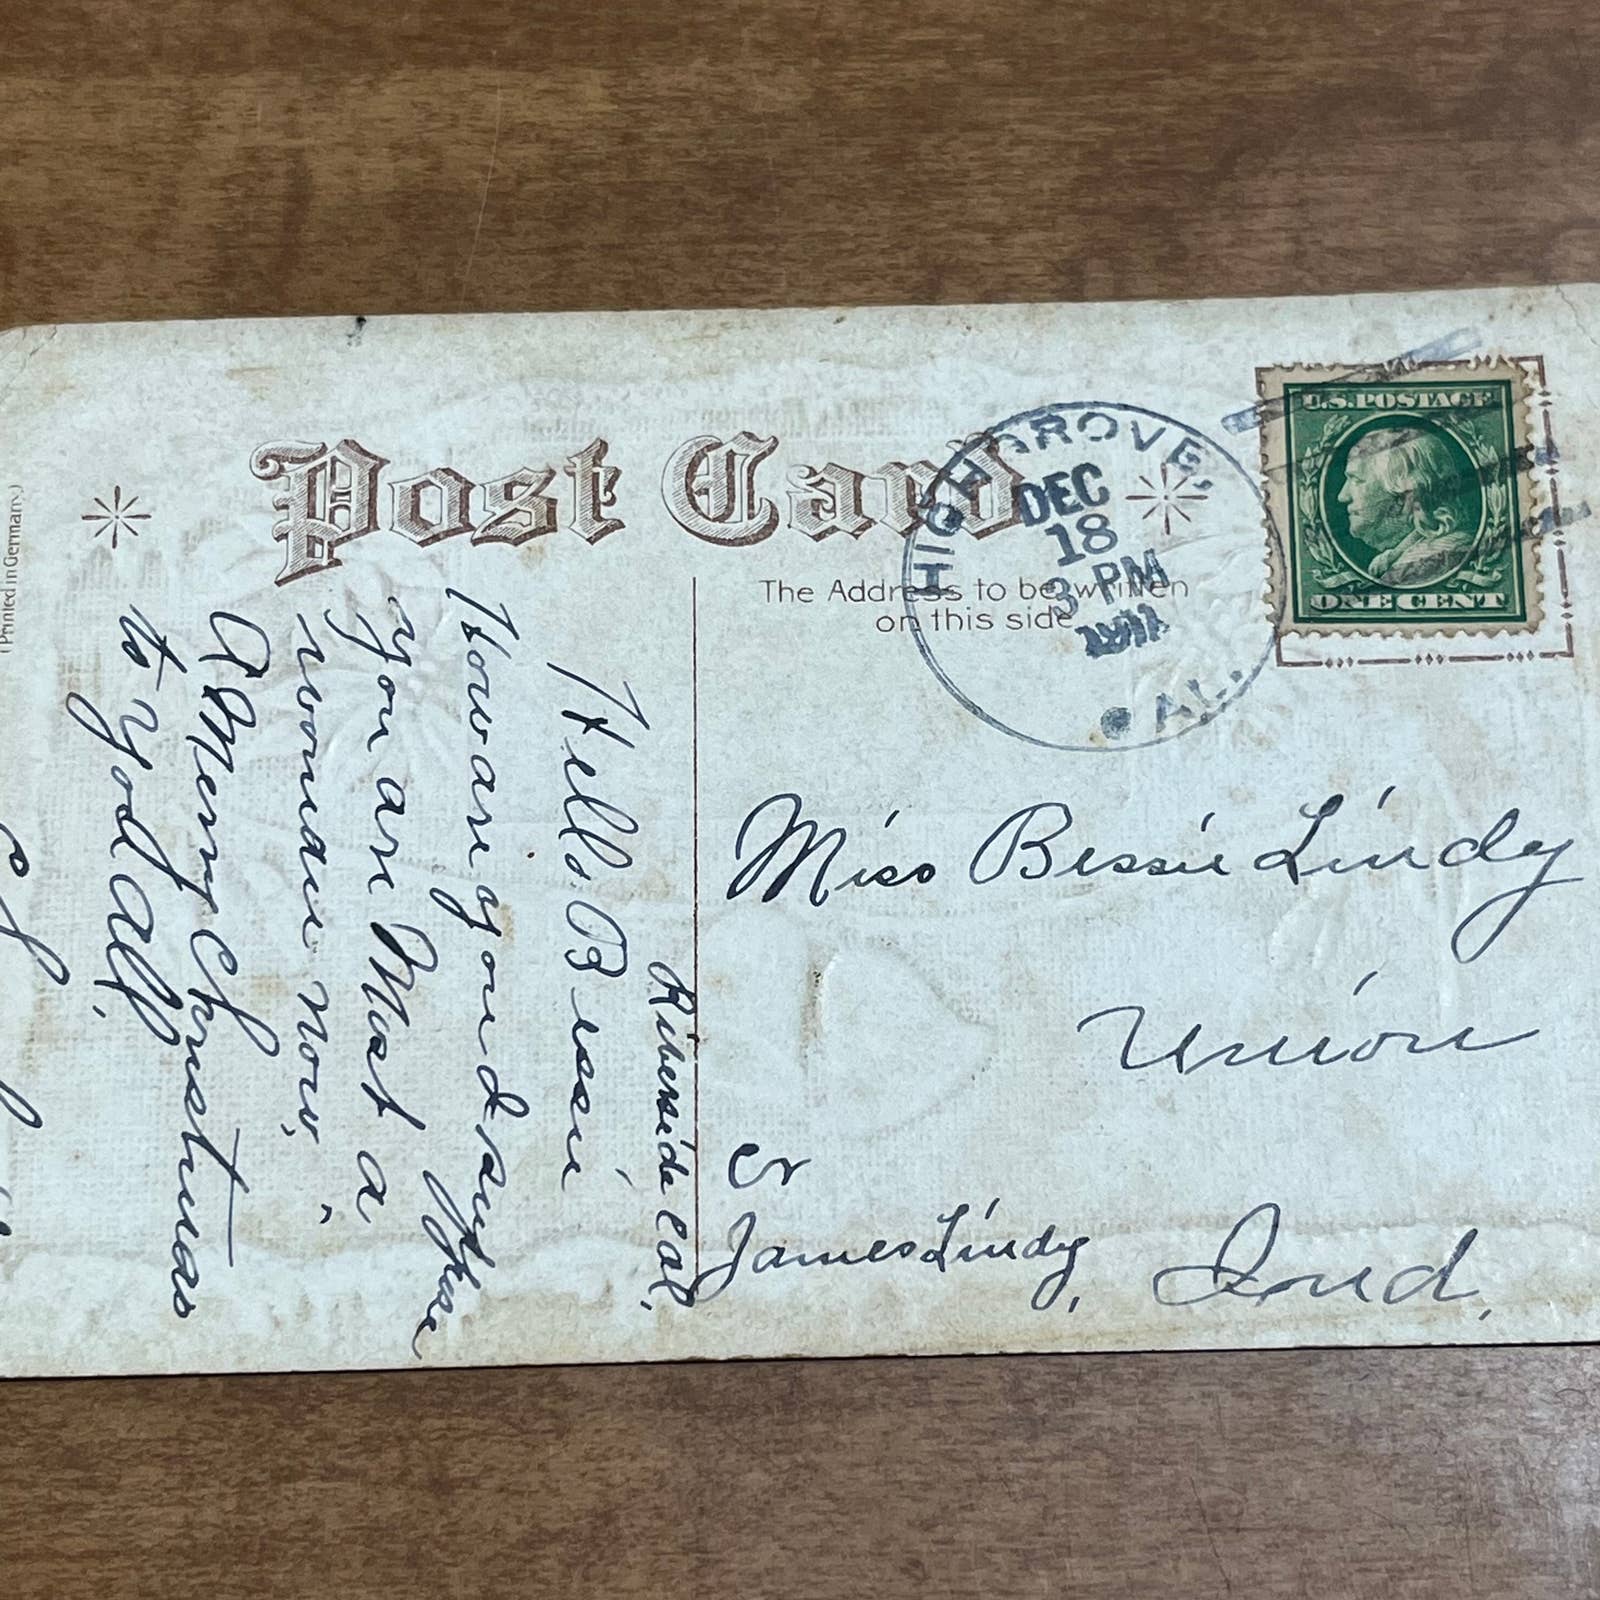 Post Card
The Address to be written
on this side
HIGHGROVE,
DEC
18
3 PM
1911
CAL.
U.S. POSTAGE
ONE CENT
Miss Bessie Lindy
Union
or
James Lindy,
Ind.
Riverside Cal.
Hello Bessie
How are you I suppose
you are Most a
woman now,
A Merry Christmas
to you All,
(Printed in Germany)